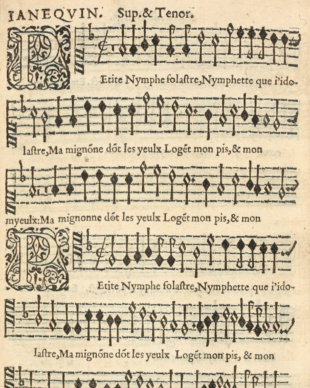 IANEQVIN. Sup.& Tenor.
PEtite Nymphe folaſtre,Nymphette que i'ido-
laſtre,Ma mignõne dõt les yeulx Logẽt mon pis,& mon
myeulx:Ma mignonne dõt les yeulx Logẽt mon pis,& mon
PEtite Nymphe folaſtre,Nymphette que i'ido-
laſtre,Ma mignõne dõt les yeulx Logẽt mon pis,& mon